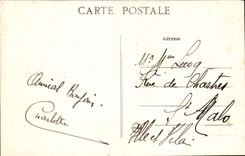 CARTE POSTALE
adresse
Mr Mme Lecoq
Rue de Chartres
St Malo
Ille et Vilaine
Amical Bonjour
Charlotte